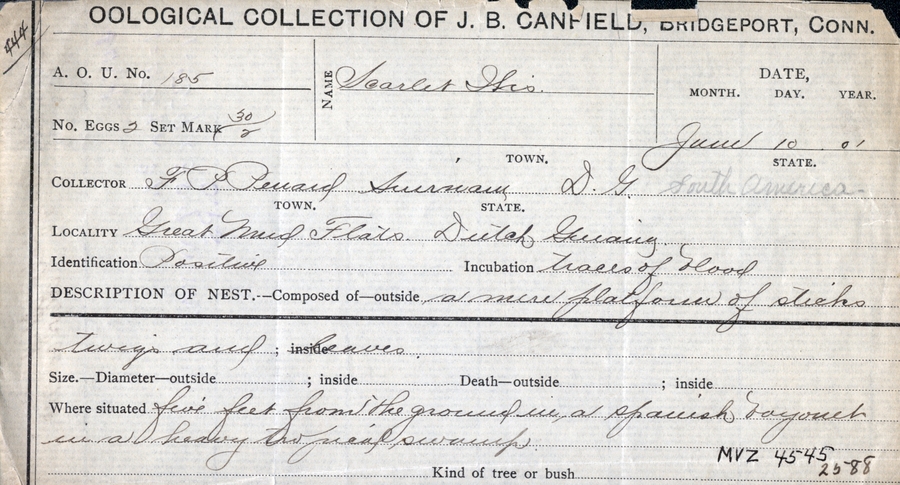 444
OOLOGICAL COLLECTION OF J. B. CANFIELD, BRIDGEPORT, CONN.
A. O. U. No. 185 NAME Scarlet Ibis. DATE, MONTH. DAY. YEAR.
No. Eggs 2 Set Mark 30/2 June 10. 01
TOWN. STATE.
Collector F P Penard Surinam D. G. South America
TOWN. STATE.
Locality Great Mud Flats. Dutch Guiana.
Identification Positive Incubation traces of blood
DESCRIPTION OF NEST.--Composed of—outside a mere platform of sticks
twigs and ; inside leaves.
Size.—Diameter—outside ; inside Death—outside ; inside
Where situated five feet from the ground in a spanish bayonet
in a heavy tropical swamp
MVZ 4545
Kind of tree or bush 2588